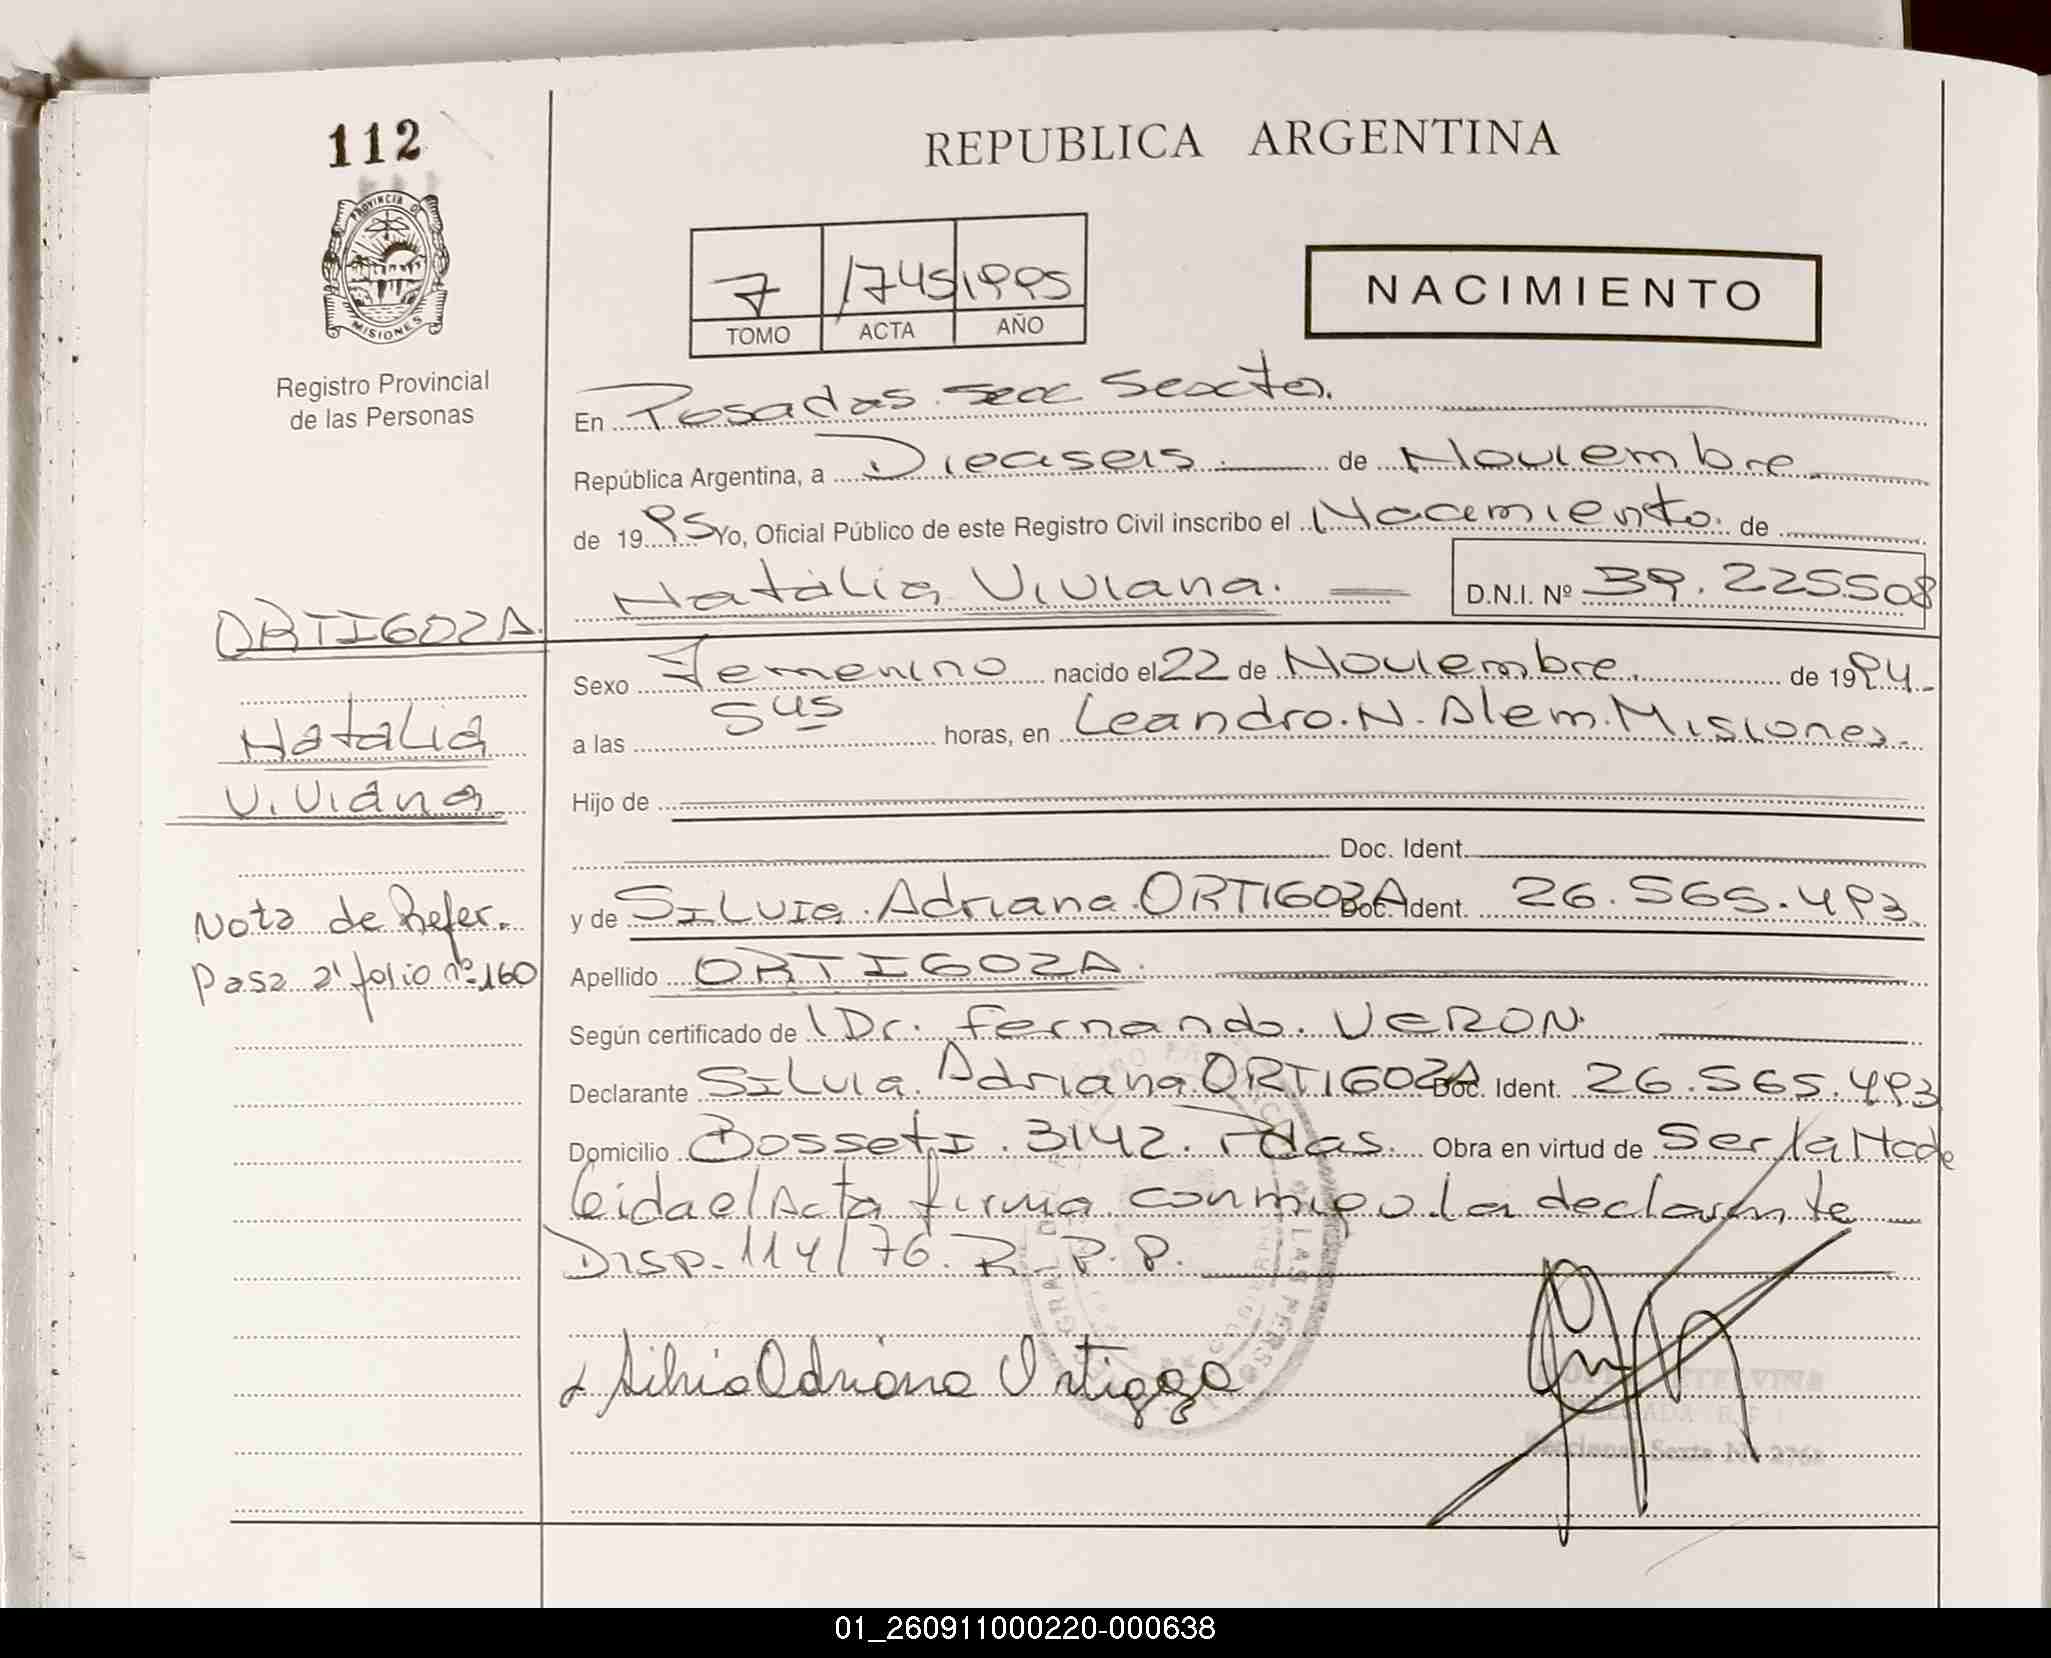 112
REPUBLICA ARGENTINA
PROVINCIA DE
MISIONES
Registro Provincial
de las Personas
7 1745 1995
TOMO ACTA AÑO
NACIMIENTO
En Posadas Secc Sexta.
República Argentina, a Dieciseis de Noviembre
de 1995 Yo, Oficial Público de este Registro Civil inscribo el Nacimiento de
Natalia Viviana. D.N.I. Nº 39.225508
ORTIGOZA
Natalia
Viviana
Nota de Refer.
Pasa al folio nº 160
Sexo Femenino nacido el 22 de Noviembre de 1994
a las 5 45 horas, en Leandro. N. Alem. Misiones.
Hijo de
Doc. Ident.
y de Silvia Adriana ORTIGOZA Doc. Ident. 26.565.493
Apellido ORTIGOZA
Según certificado de Dr. Fernando VERON
Declarante Silvia Adriana ORTIGOZA Doc. Ident. 26.565.493
Domicilio Bosseti 3142. Pdas. Obra en virtud de Ser la Mad
leida el Acta firma conmigo la declarante
Disp. 114/76. R.P.P.
Silvia Adriana Ortigoza
01_260911000220-000638